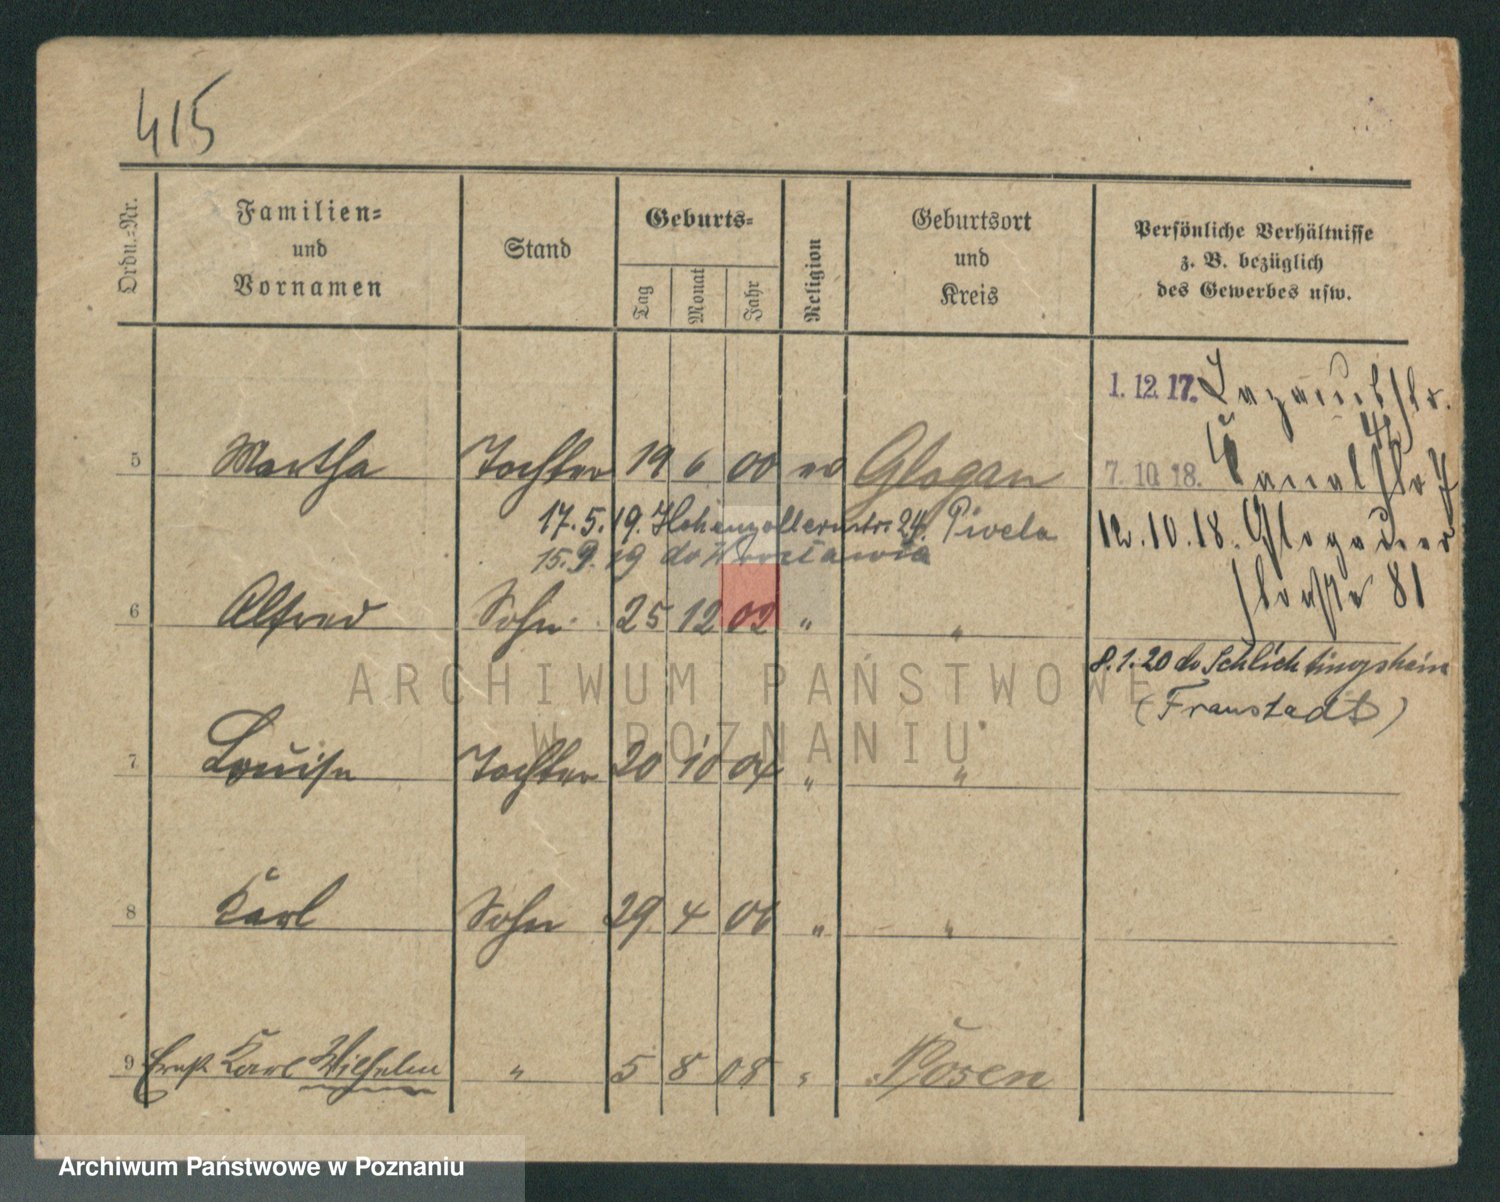 415
Ordn.=Nr.
Familien=
und
Vornamen
Stand
Geburts=
Tag
Monat
Jahr
Religion
Geburtsort
und
Kreis
Persönliche Verhältnisse
z. B. bezüglich
des Gewerbes usw.
1. 12. 17.
5 Martha Tochter 19 6 00 ev Glogau
7. 10. 18. Kanalstr. 7
17. 5. 19. Hohenzollernstr. 24.
12. 10. 18. Glogauer
15. 9. 19 do Wrocławia
straße 81
6 Alfred Sohn 25 12 02 " "
8. 1. 20 do Schlichtingsheim
(Fraustadt)
ARCHIWUM PAŃSTWOWE
W POZNANIU
7 Louise Tochter 20 10 04 " "
8 Karl Sohn 29 4 06 " "
9 Ernst Karl Wilhelm " 5 8 08 " Posen
Archiwum Państwowe w Poznaniu